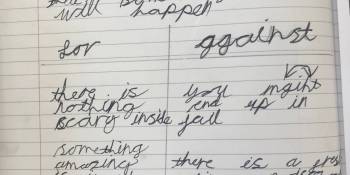 will happen
for against
there is you mgiht
nothing end up in
scary inside jail
something
amazing there is a